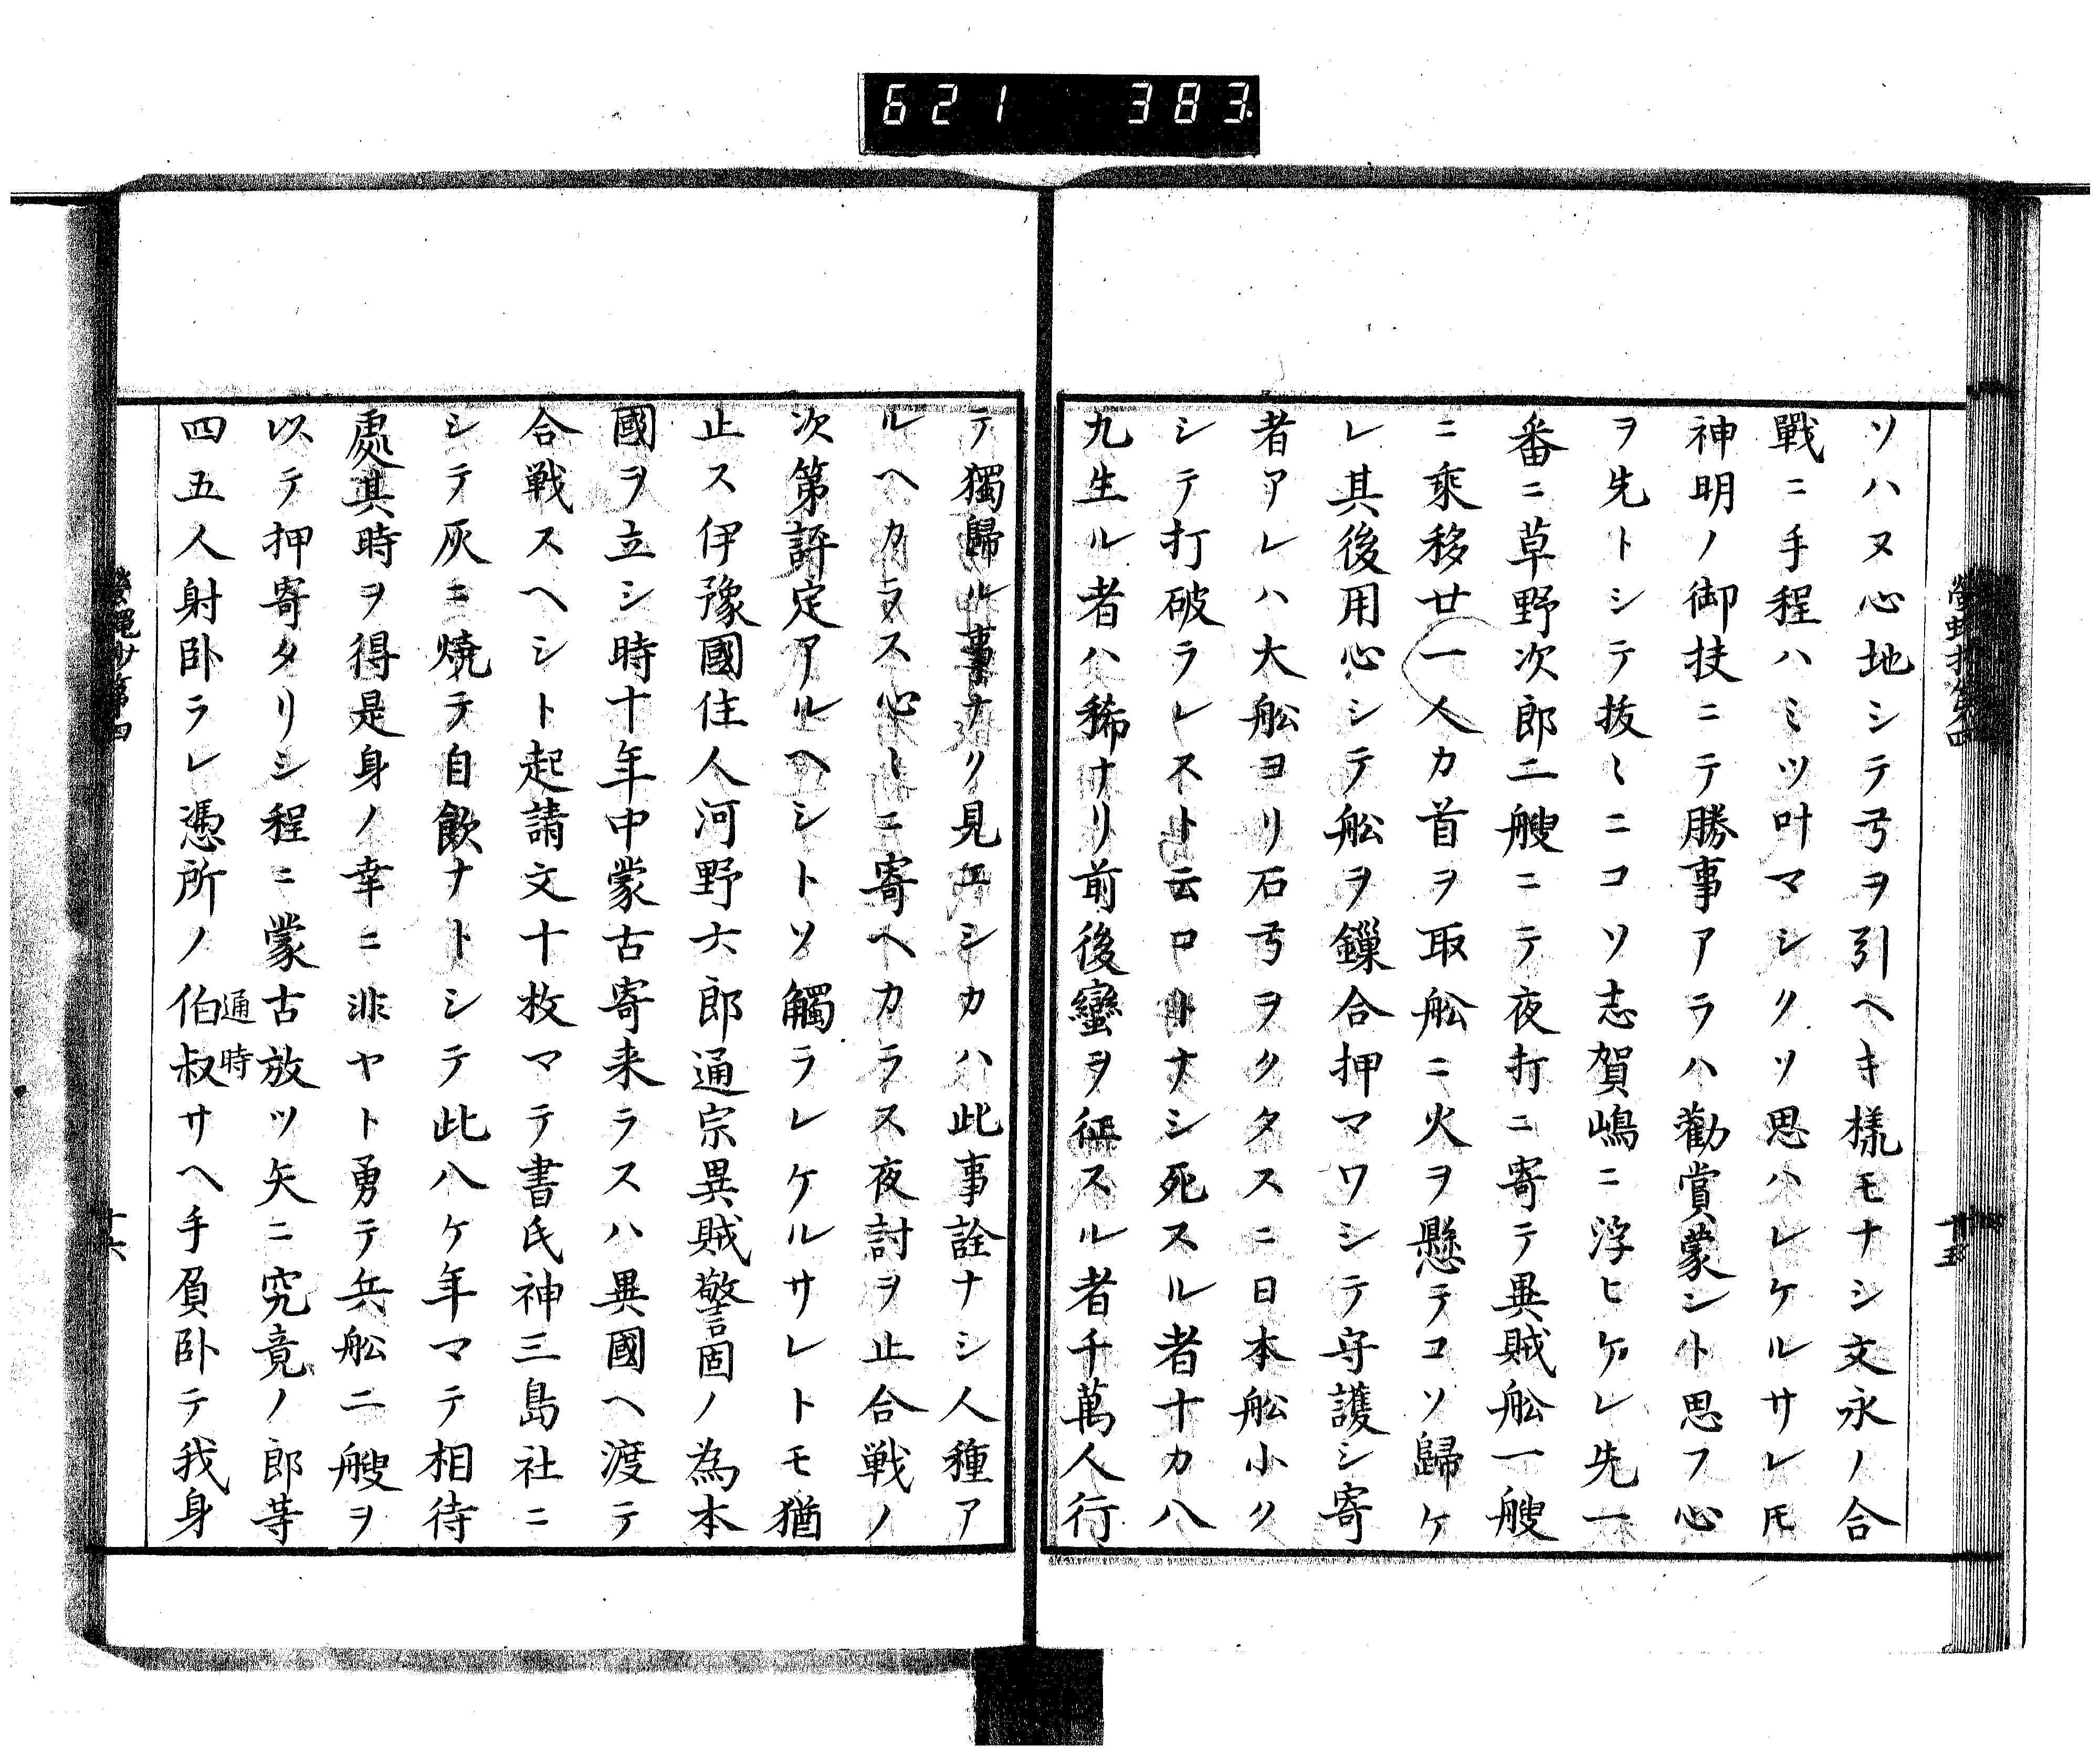 621 383
ソハヌ心地シテ弓ヲ引ヘキ様モナシ文永ノ合
戰ニ手程ハミツ叶マシクソ思ハレケルサレ𪜈
神明ノ御扶ニテ勝事アラハ勸賞蒙シト思フ心
ヲ先トシテ抜〻ニコソ志賀嶋ニ浮ヒケレ先一
番ニ草野次郎二艘ニテ夜打ニ寄テ異賊舩一艘
ニ乘移廿一人カ首ヲ取舩ニ火ヲ懸テコソ歸ケ
レ其後用心シテ舩ヲ鏁合押マワシテ守護シ寄
者アレハ大舩ヨリ石弓ヲクタスニ日本舩小ク
シテ打破ラレスト云ロトナシ死スル者十カ八
九生ル者ハ稀ナリ前後蠻ヲ征スル者千萬人行
テ獨歸ル事ナク見エシカハ此事詮ナシ人種ア
ルヘカラス心〻ニ寄ヘカラス夜討ヲ止合戦ノ
次第評定アルヘシトソ觸ラレケルサレトモ猶
止ス伊豫國住人河野六郎通宗異賊警固ノ為本
國ヲ立シ時十年中蒙古寄来ラスハ異國ヘ渡テ
合戦スヘシト起請文十枚マテ書氏神三島社ニ
シテ灰ニ焼テ自飲ナトシテ此八ケ年マテ相待
處其時ヲ得是身ノ幸ニ非ヤト勇テ兵舩二艘ヲ
以テ押寄タリシ程ニ蒙古放ツ矢ニ究竟ノ郎等
四五人射卧ラレ憑所ノ伯叔サヘ手負卧テ我身
通時
十六